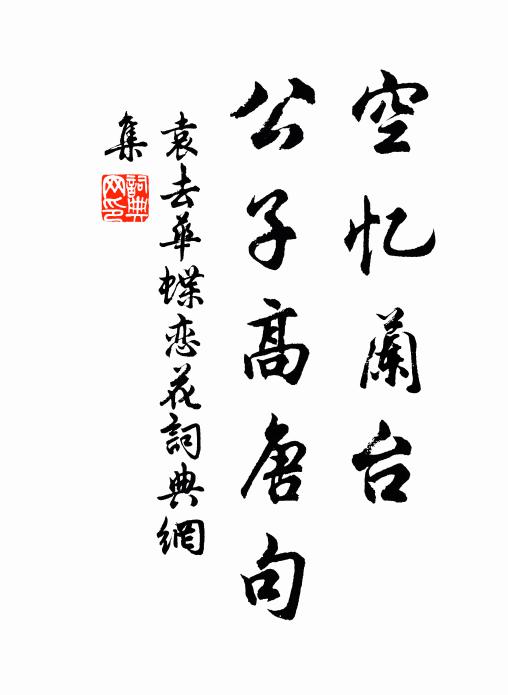 空忆蘭台
公子高唐句
袁去華蝶恋花詞典網
集
詞典
网印